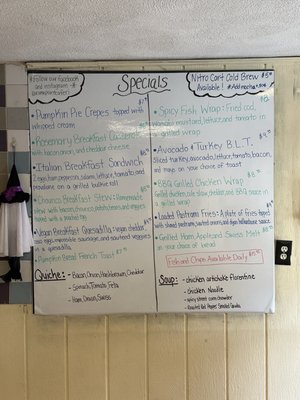 Follow our facebook
and instagram @
Specials
Nitro Cart Cold Brew
Available!
Pumpkin Pie Crepes topped with
whipped cream
Rosemary Breakfast
with bacon, onion, and cheddar cheese
Italian Breakfast Sandwich
Eggs, ham, pepperoni, salami, lettuce, tomato, and
provolone on a grilled
Breakfast Stew: Homemade
stew with bacon,
Vegan Breakfast Quesadilla: vegan cheddar,
sausage, and sauteed veggies
in a quesadilla
Pumpkin Bread French Toast
Quiche:
- Bacon, Onion, Cheddar
- Spinach, Tomato, Feta
- Ham, Onion, Swiss
Spicy Fish Wrap: Fried cod,
mustard, lettuce and tomato in
grilled wrap
Avocado & Turkey B.L.T.
Sliced turkey, avocado, lettuce, tomato, bacon,
and mayo on your choice of toast
BBQ Grilled Chicken Wrap
Grilled chicken, cheddar, and BBQ sauce in
a grilled wrap
Loaded Pastrami Fries: A plate of fries topped
with
Grilled Ham, Apple and Swiss Melt
on your choice of bread
Fish and Chips Available Daily
Soup:
- chicken artichoke florentine
- Chicken Noodle
- spicy street corn chowder
- Roasted Red Pepper Smoked Gouda